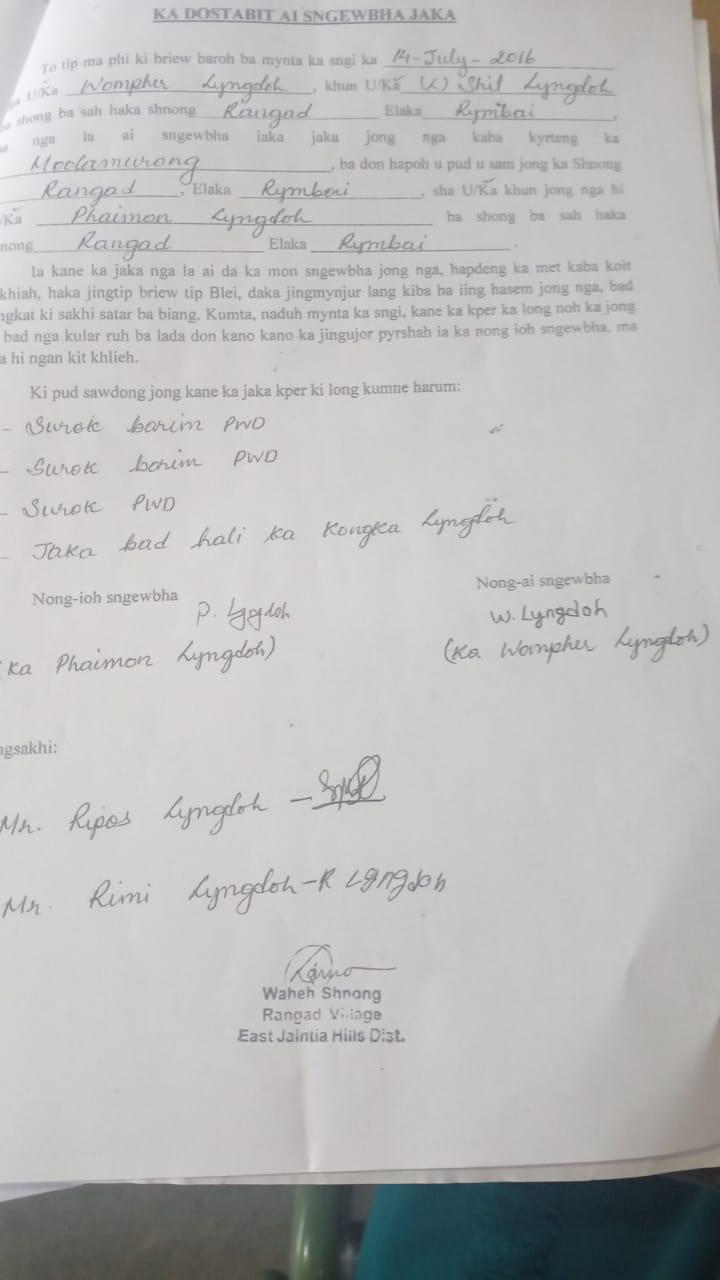 KA DOSTABIT AI SNGEWBHA JAKA
To tip ma phi ki briew baroh ba mynta ka sngi ka 14-July-2016
U/Ka Wompher Lyngdoh, khun U/Ka (L) Shil Lyngdoh
shong ba sah haka shnong Rangad Elaka Rymbai,
nga la ai sngewbha iaka jaka jong nga kaba kyrteng ka
Moolamurong, ba don hapoh u pud u sam jong ka Shnong
Rangad, Elaka Rymbai, sha U/Ka khun jong nga hi
/Ka Phaimon Lyngdoh ba shong ba sah haka
nong Rangad Elaka Rymbai.
Ia kane ka jaka nga la ai da ka mon sngewbha jong nga, hapdeng ka met kaba koit
khiah, haka jingtip briew tip Blei, daka jingmynjur lang kiba ha iing hasem jong nga, bad
ngkat ki sakhi satar ba biang. Kumta, naduh mynta ka sngi, kane ka kper ka long noh ka jong
bad nga kular ruh ba lada don kano kano ka jingujor pyrshah ia ka nong ioh sngewbha, ma
a hi ngan kit khlieh.
Ki pud sawdong jong kane ka jaka kper ki long kumne harum:
- Surok barim PWD
- Surok barim PWD
- Surok PWD
- Jaka bad hali ka Kongka Lyngdoh
Nong-ioh sngewbha Nong-ai sngewbha
P. Lyngdoh W. Lyngdoh
(Ka Phaimon Lyngdoh) (Ka Wompher Lyngdoh)
ngsakhi:
Mr. Ripos Lyngdoh -
Mr. Rimi Lyngdoh - R Lyngdoh
Waheh Shnong
Rangad Village
East Jaintia Hills Dist.